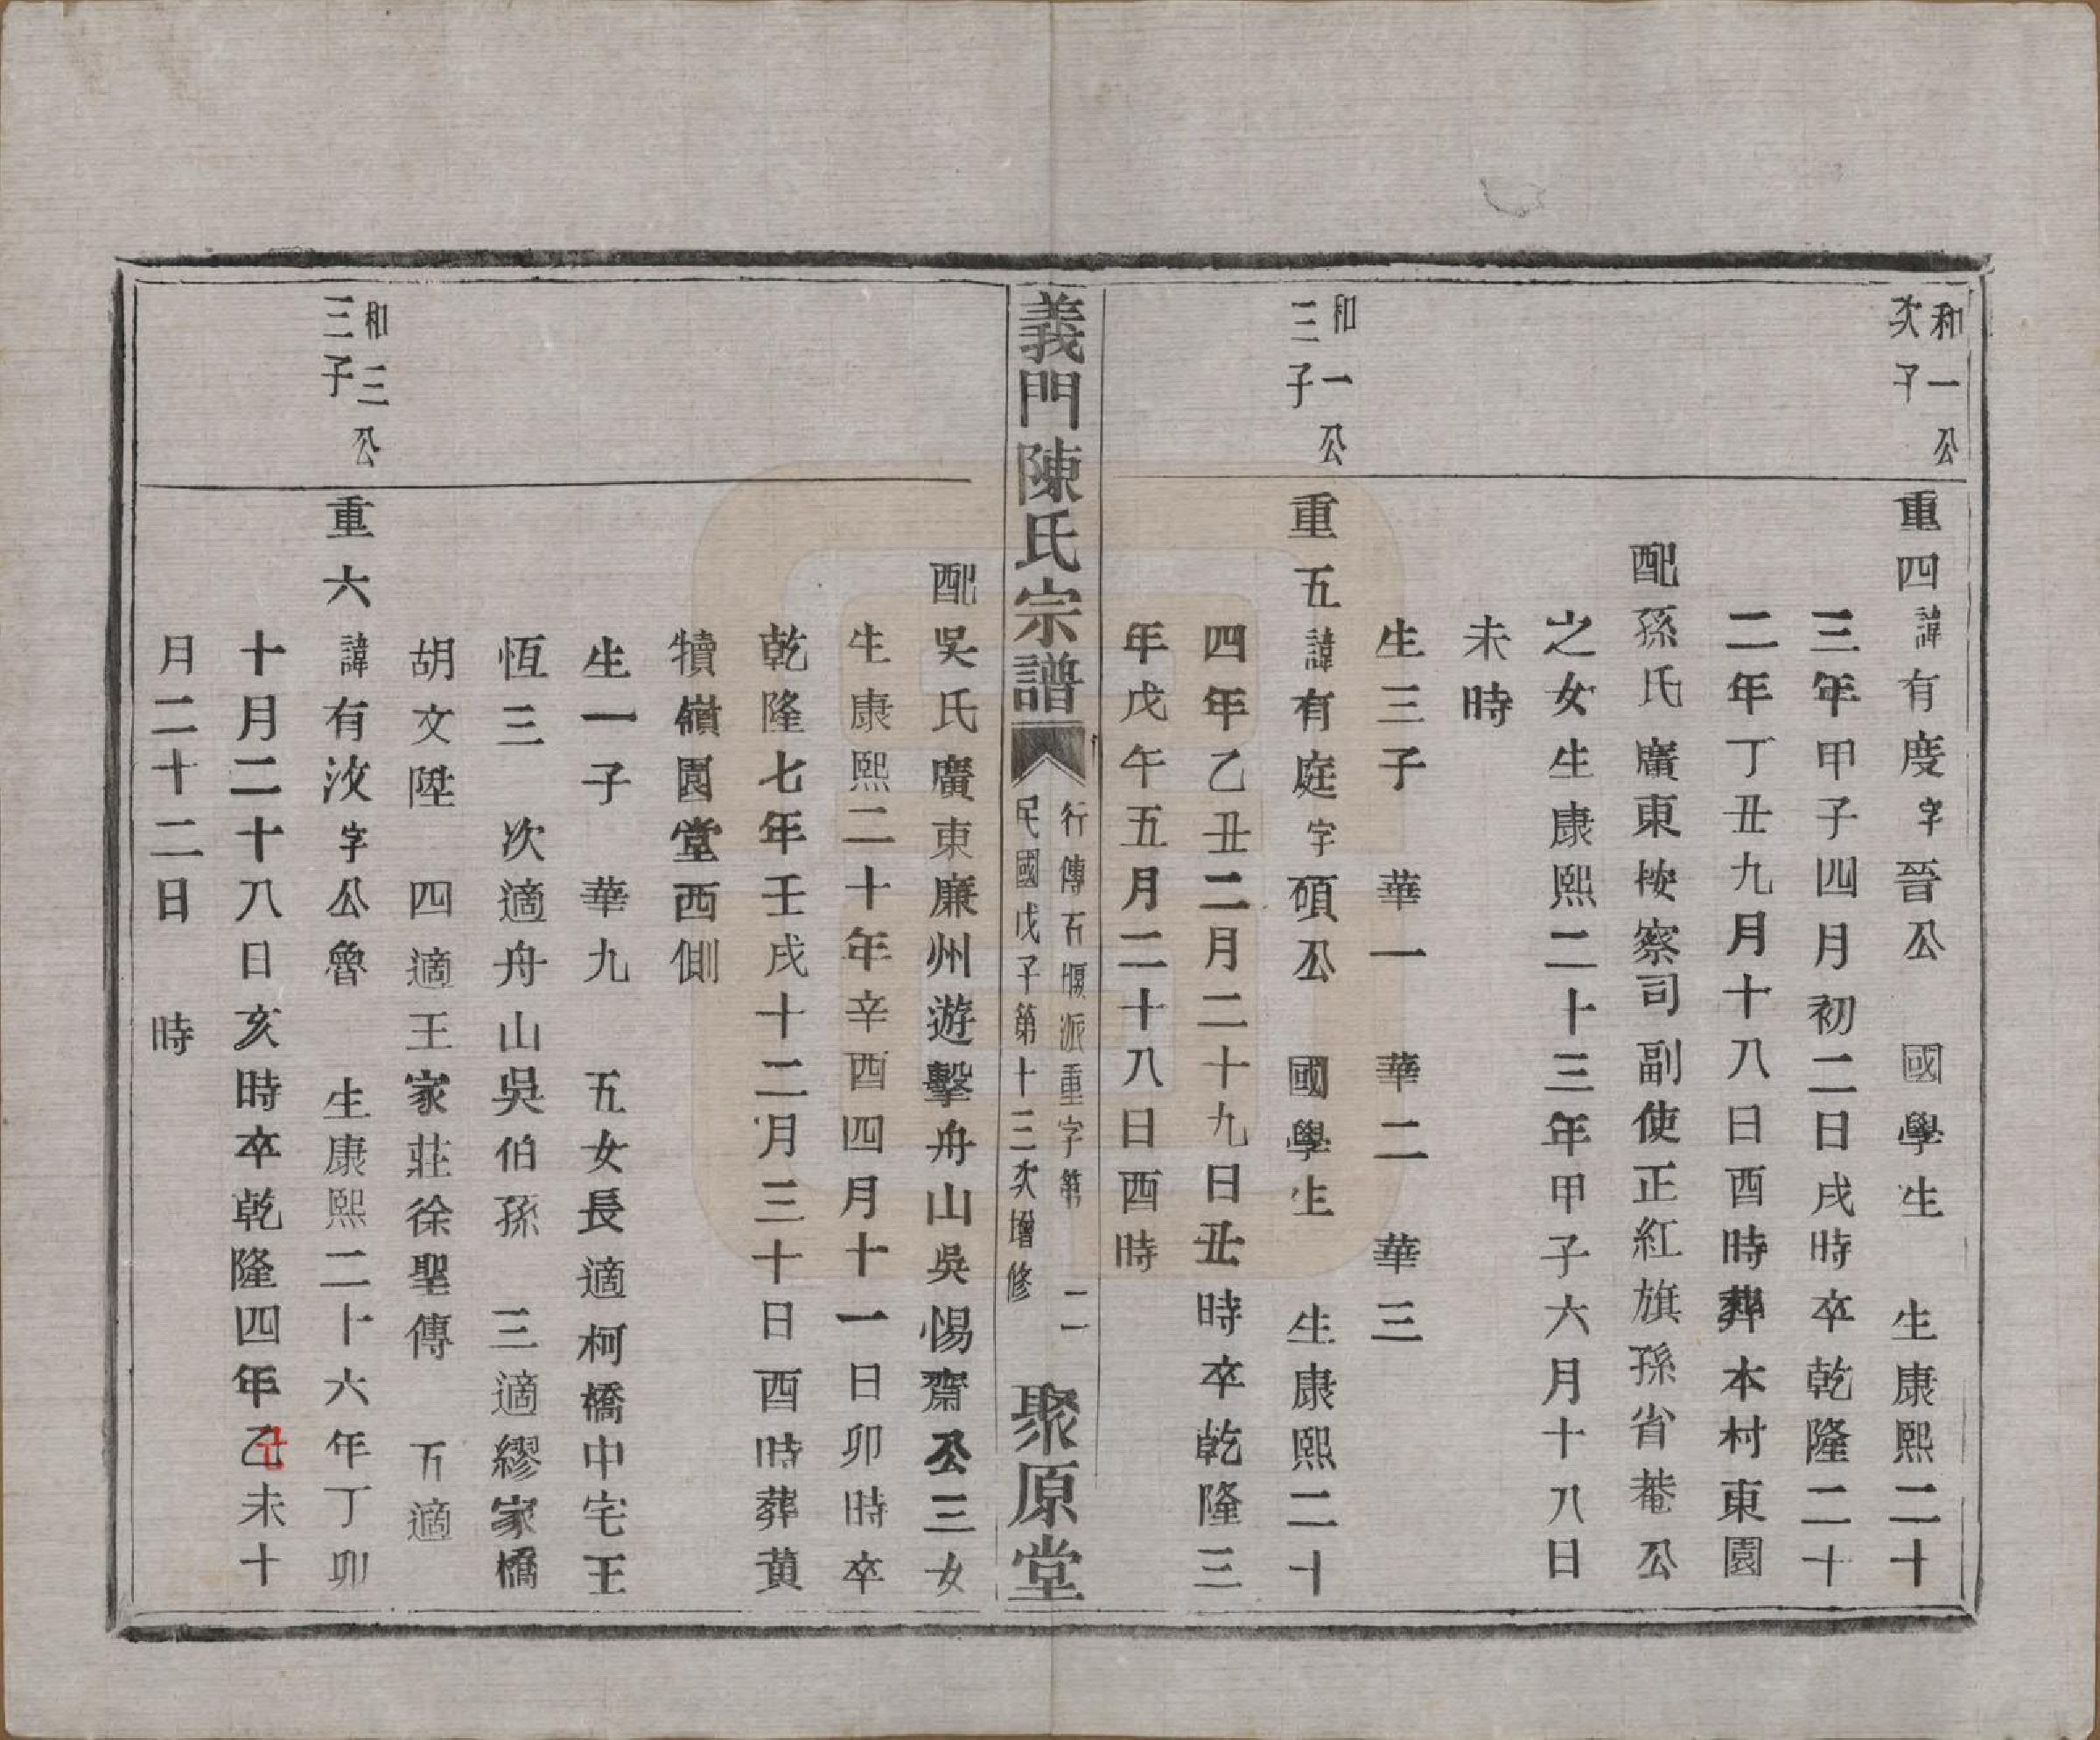 和一公
次子
重四諱有度字晉公　國學生　生康熙二十
三年甲子四月初二日戌時卒乾隆二十
二年丁丑九月十八日酉時葬本村東園
配孫氏廣東按察司副使正紅旗孫省菴公
之女生康熙二十三年甲子六月十八日
未時
生三子　華一　華二　華三
和一公
三子
重五諱有庭字碩公　國學生　生康熙二十
四年乙丑二月二十九日丑時卒乾隆三
年戊午五月二十八日酉時
義門陳氏宗譜
行傳石堰派重字第　二
民國戊子第十三次增修
聚原堂
配吳氏廣東廉州遊擊舟山吳惕齋公三女
生康熙二十年辛酉四月十一日卯時卒
乾隆七年壬戌十二月三十日酉時葬黄
犢嶺園堂西側
生一子　華九　五女長適柯橋中宅王
恆三　次適舟山吳伯孫　三適繆家橋
胡文陞　四適王家莊徐聖傳　五適
和三公
三子
重六諱有汶字公魯　生康熙二十六年丁卯
十月二十八日亥時卒乾隆四年己未十
月二十二日　時